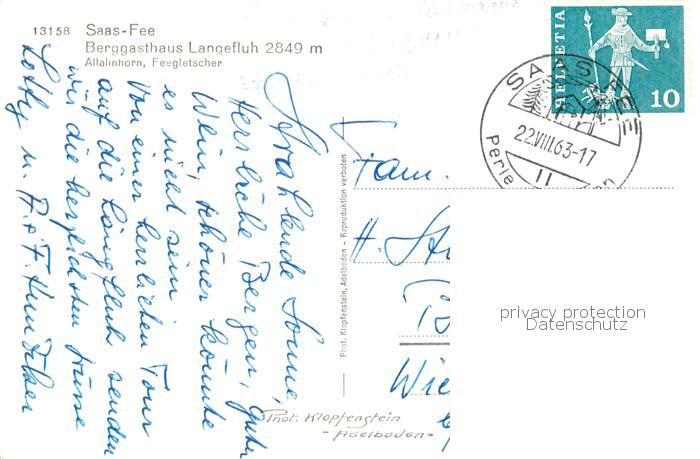 13158 Saas-Fee
Berggasthaus Langefluh 2849 m
Allalinhorn, Feegletscher
Strahlende Sonne,
Herrliche Bergen, guter
Wein, schöner könnte
es nicht sein.
Von einer herrlichen Tour
auf die Längfluh senden
wir die herzlichsten Grüsse
Lotty u.
Phot. Klopfenstein, Adelboden - Reproduktion verboten
Phot. Klopfenstein
- Adelboden -
HELVETIA
10
SAAS-FEE
22.VIII.63-17
Perle
11
Fam.
H.
Wie
privacy protection
Datenschutz